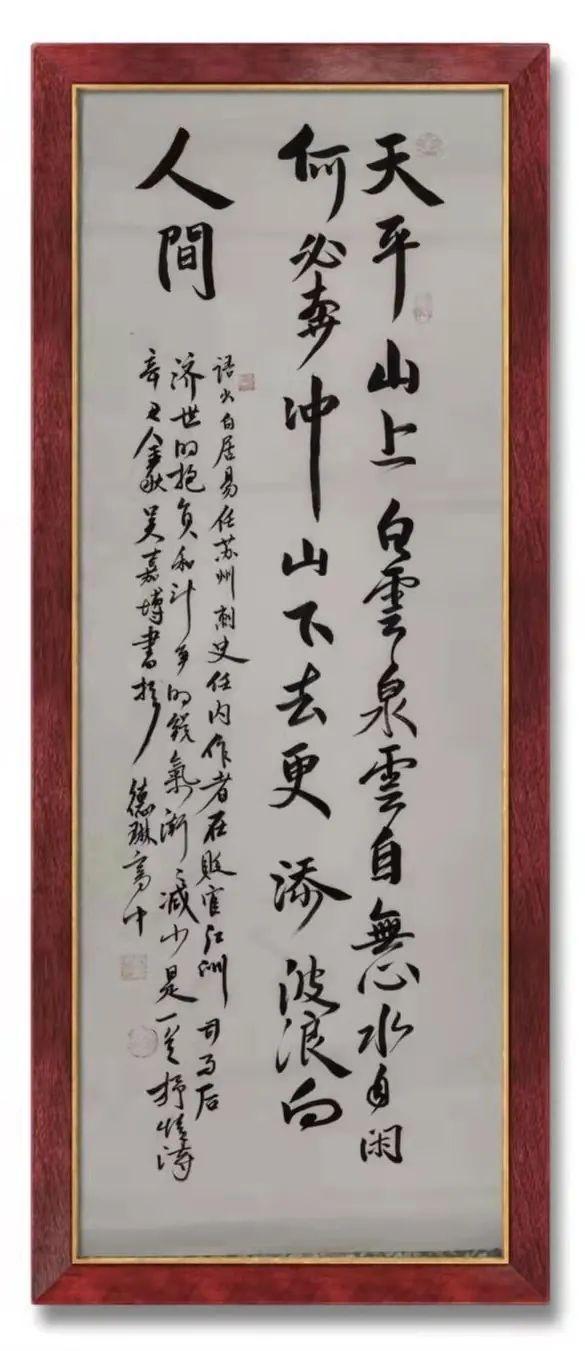 天平山上白雲泉雲自無心水自闲
何必奔冲山下去更添波浪向
人間
语出白居易任苏州刺史任内作者在贬官江州司马后
济世的抱负和斗争的锐氣渐渐减少是一首抒情诗
辛丑金秋吴嘉博書於德琳高中